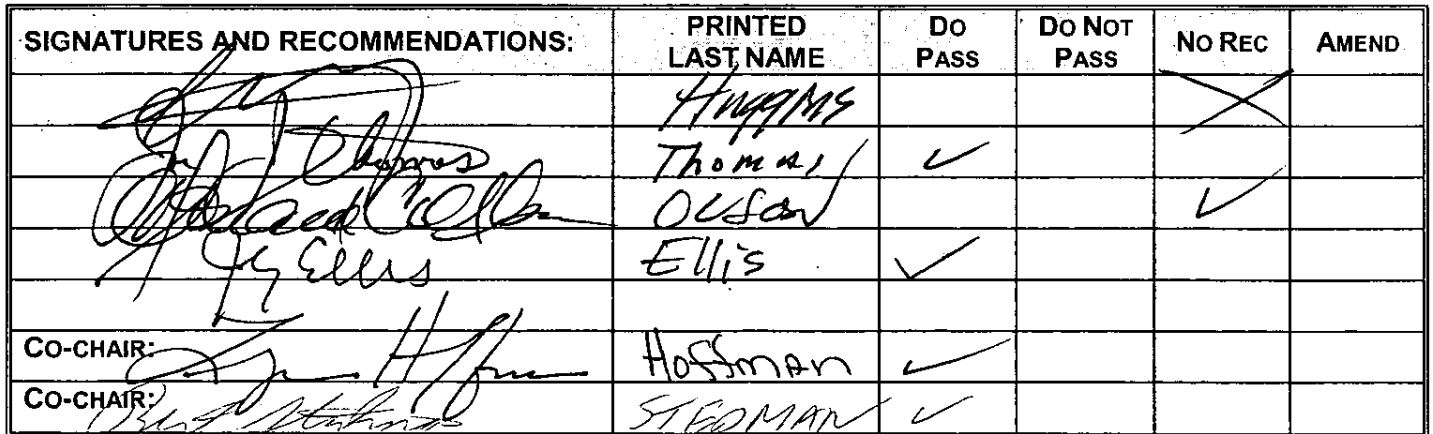 SIGNATURES AND RECOMMENDATIONS: PRINTED LAST NAME DO PASS DO NOT PASS NO REC AMEND
Huggins X
Thomas Thomas ✓
Olson ✓
Ellis Ellis ✓
CO-CHAIR: Hoffman ✓
CO-CHAIR: STEDMAN ✓